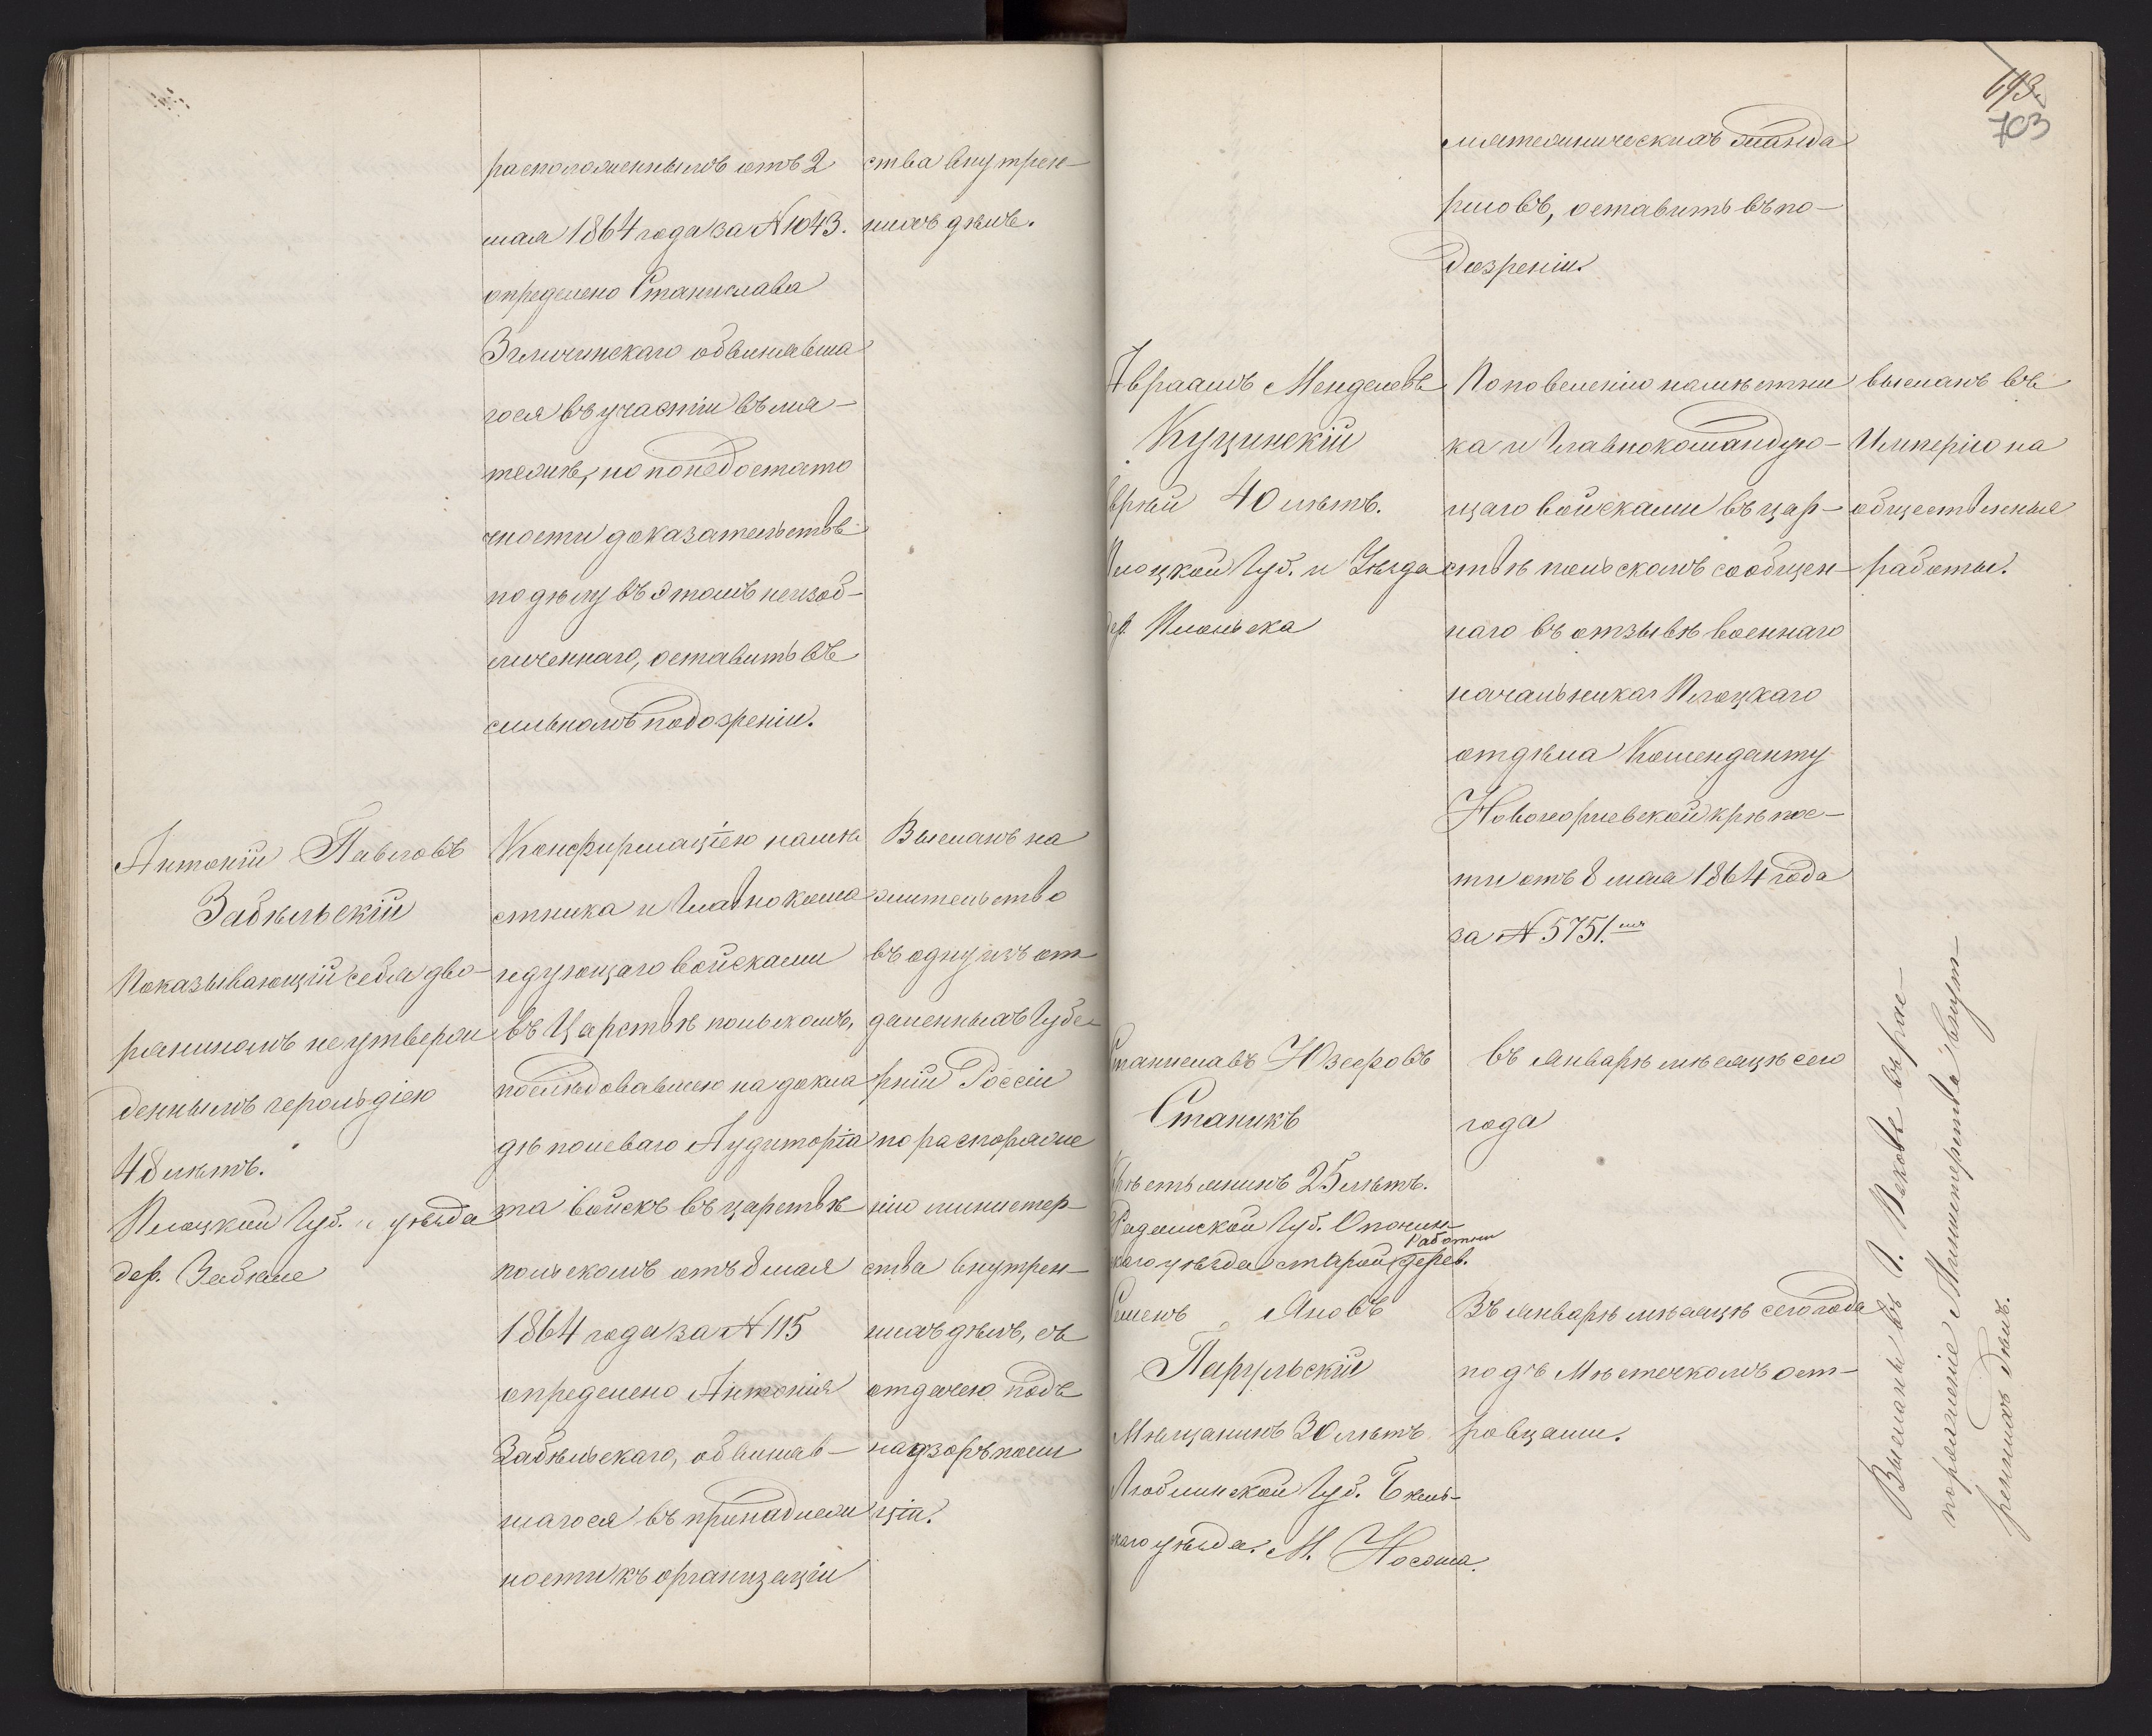 расположеннымъ отъ 2
мая 1864 года за № 1043.
определено Станислава
Згличинскаго обвинявша
гося въ участіи въ мя-
тежѣ, но по недостато
чности доказательствъ
по дѣлу въ этомъ неизоб-
личеннаго, оставить въ
сильномъ подозреніи.
ства внутрен-
нихъ дѣлъ.
Антоній Павловъ
Забѣльскій
Показывающій себя дво-
ряниномъ неутверж
деннымъ герольдіею
48 лѣтъ.
Плоцкой Губ. и уѣзда
дер.
Конфирмаціею намѣ
стника и Главнокома
ндующаго войсками
въ Царствѣ польскомъ,
последовавшею на докла
дѣ полеваго Аудиторіа
та войскъ въ царствѣ
польскомъ отъ 8 мая
1864 года за № 115
определено Антонія
Забѣльскаго, обвиняв-
шагося въ принадлеж
ности къ организаціи
Высланъ на
жительство
въ одну изъ от
даленныхъ Губе
рній Россіи
по распоряже
нію министер-
ства внутрен-
нихъ дѣлъ, съ
отдачею подъ
надзоръ поли
ціи.
693.
703
мятежническихъ жанда
рмовъ, оставить въ по-
дозреніи.
Авраамъ Менделевъ
Куцинскій
Еврей 40 лѣтъ.
Плоцкой Губ. и Уѣзда
дер. Плоньска
По повеленію намѣстни
ка и Главнокомандую-
щаго войсками въ цар-
ствѣ польскомъ сообщен-
наго въ отзывѣ военнаго
начальника Плоцкаго
отдѣла Коменданту
Новогоргіевской крѣпос-
ти отъ 8 мая 1864 года
за № 5751.
высланъ въ
Имперію на
общественныя
работы.
Станиславъ Юзефовъ
Станикъ
Крѣстьянинъ 25 лѣтъ.
Радомской Губ. Опочин-
скаго уѣзда старой дерев.
въ январѣ мѣсяцѣ сего
года
Яновъ
Паргульскій
Мѣщанинъ 30 лѣтъ
Люблинской Губ. Бѣль-
скаго уѣзда. М.
Въ январѣ мѣсяцѣ сего года
подъ Мѣстечкомъ ост-
ровцами.
Высланы въ Г. Псковъ въ рас-
поряженіе Министерства внут-
реннихъ дѣлъ.